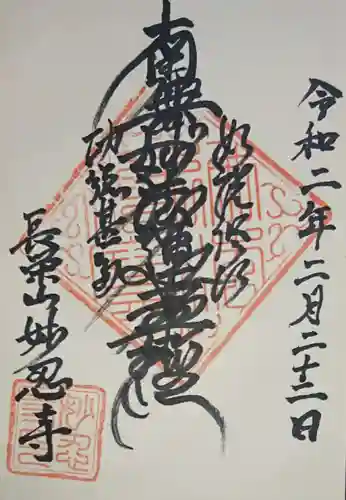 令和二年二月二十二日
如説修行
南無妙法蓮華経
功徳甚多
長栄山妙忍寺